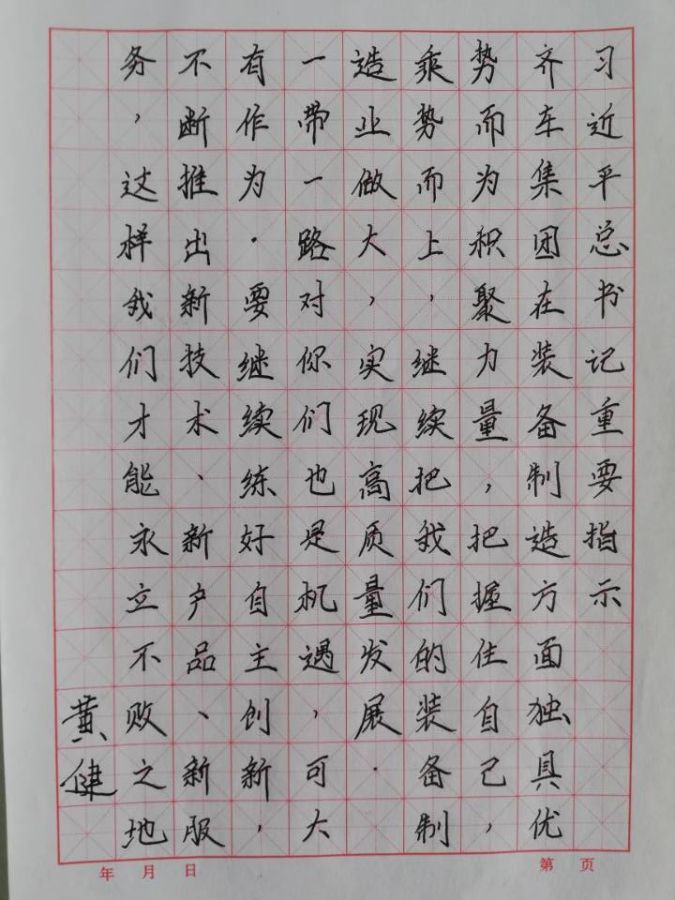 习近平总书记重要指示
齐车集团在装备制造方面独具优
势而为积聚力量，把握住自己，
乘势而上，继续把我们的装备制
造业做大，实现高质量发展．
一带一路对你们也是机遇，可大
有作为．要继续练好自主创新，
不断推出新技术、新产品、新服
务，这样我们才能永立不败之地
黄健
年 月 日
第 页